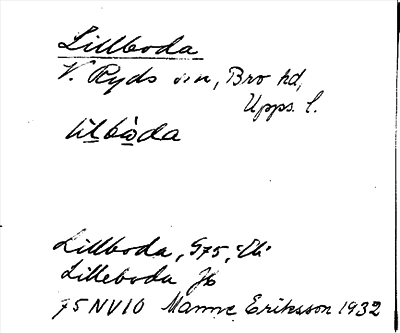 Lillboda
V. Ryds sn, Bro hd,
Upps. l.
Lillboda, G75,
Lilleboda Jb
75NV10 Manne Eriksson 1932